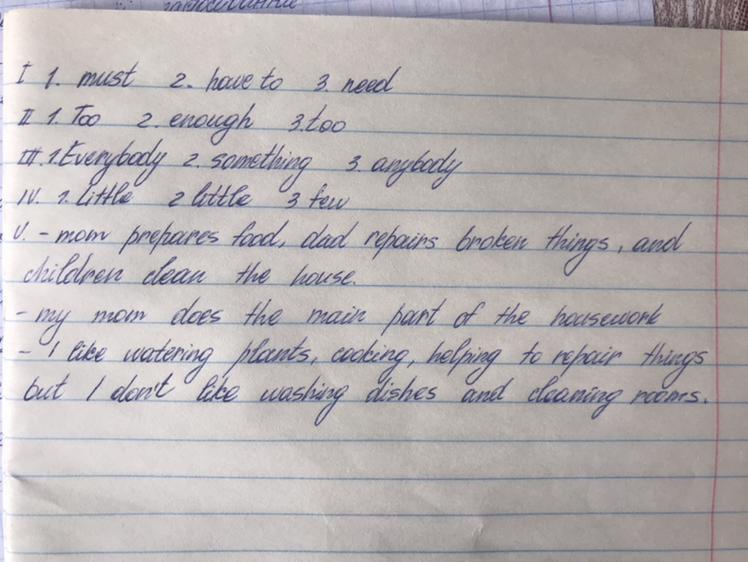 I 1. must 2. have to 3. need
II 1. Too 2. enough 3. too
III. 1. Everybody 2. something 3. anybody
IV. 1. little 2 little 3 few
V. - mom prepares food, dad repairs broken things, and
children clean the house.
- my mom does the main part of the housework
- I like watering plants, cooking, helping to repair things
but I don't like washing dishes and cleaning rooms.